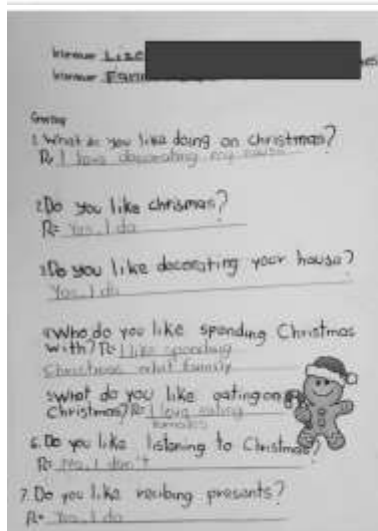 Lize
Greeting
1. What do you like doing on christmas?
R= I love decorating my house
2. Do you like chrismas?
R= Yes, I do
3. Do you like decorating your house?
Yes, I do
4. Who do you like spending Christmas
with? R= I like spending
Christmas whit family
5. what do you like eating on
Christmas? R= I love eating
tamales
6. Do you like listening to Christmas?
R= No, I don't
7. Do you like recibing presents?
R= Yes, I do